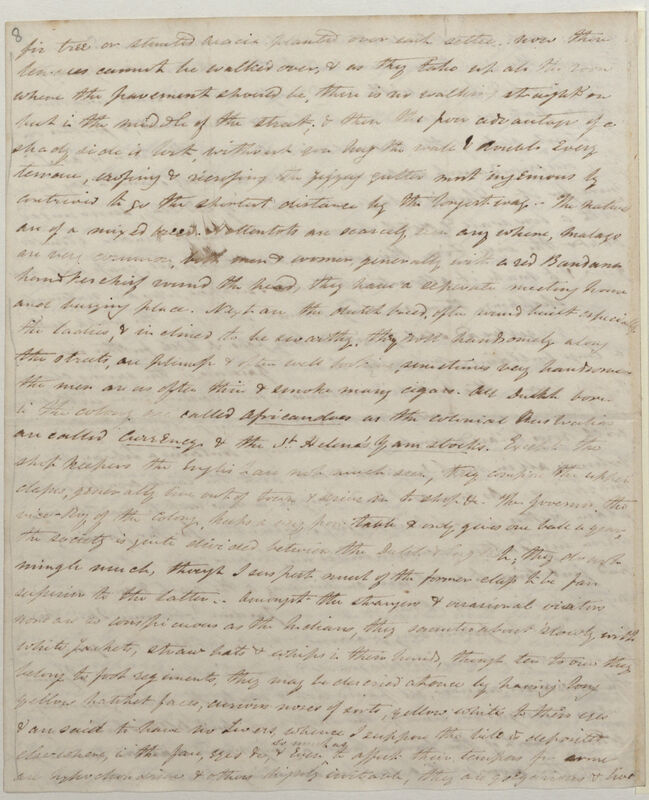 8
fir tree or stunted acacia planted over each settee. now these
terraces cannot be walked over, & as they take up all the room
where the pavement should be, there is no walking straight on
but in the middle of the street, & then the poor advantage of a
shady side is lost, without you hug the wall & double every
terrace, crossing & recrossing the zigzag gutter most ingeniously
contrived to go the shortest distance by the longest way. - The natives
are of a mixed breed. Hottentots are scarcely seen any where, Malays
are very common, both men & women generally with a red Bandana
handkerchief round the head, they have a seperate meeting house
and burying place. Next are the dutch breed, often round built especially
the ladies, & inclined to be swarthy. they roll handsomely along
the streets, are plump & often well looking sometimes very handsome
the men are as often thin & smoke many cigars. All Dutch born
in the colony are called Africanders as the colonial Australians
are called Currency & the St Helena Yam stocks. Except the
shop keepers the English are not much seen, they comprise the upper
classes, generally live out of town & drive in to shop &c. The governor, the
vice-King of the Colony, keeps a very poor table & only gives one ball a year,
the society is quite divided between the Dutch & they do not
mingle much, though I suspect most of the former class to be far
superior to the latter. - Amongst the strangers & occasional visitors
none are so conspicuous as the Indians, they saunter about slowly with
white jackets, straw hats & whips in their hands, though ten to one they
belong to foot regiments, they may be descried at once by having long
yellow hatchet faces, curvir noses of sorts, yellow whites to their eyes
& are said to have no livers, whence I suppose the bile is deposited
elsewhere, in the face, eyes &c, & even so much as to affect their tempers for some
are hypochondriacs & others highly irritable, they are gregarious & live